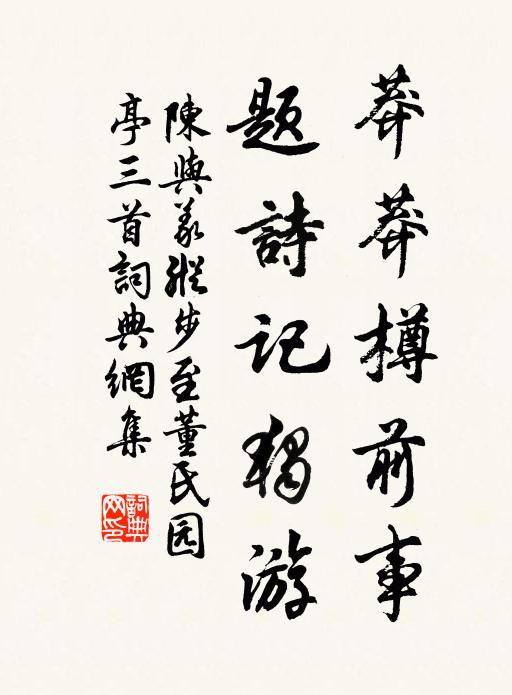 莽莽樽前事
題詩記獨游
陳與義縱步至董氏园
亭三首詞典網集
詞典
网印